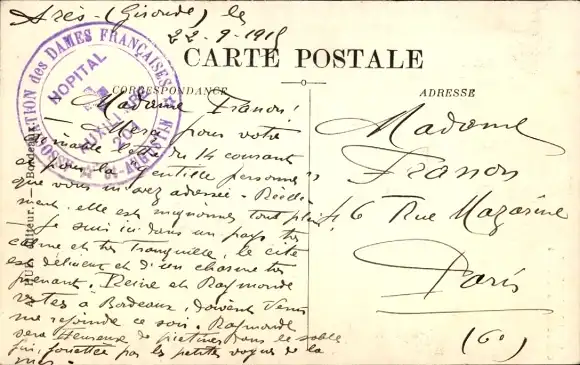 Arès - (Gironde) le
22-9-1915
CARTE POSTALE
CORRESPONDANCE
ADRESSE
ASSOCIATION des DAMES FRANÇAISES
HOPITAL
AUXILIAIRE
Bordeaux
Madame Franon!
Merci pour votre
aimable lettre du 14 courant
et pour la "gentille personne"
que vous m'avez adressée. Réelle-
ment, elle est mignonne tout plein!
Je suis ici dans un pays très
calme et très tranquille, le site
est délicieux et d'un charme très
prenant. Reine et Raymonde
restées à Bordeaux, doivent venir
me rejoindre ce soir. Raymonde
sera heureuse de piétiner dans le sable
fin, fouettée par les petites vagues de la
mer.
Madame
Franon
16 Rue Mazarine
Paris
(6e)